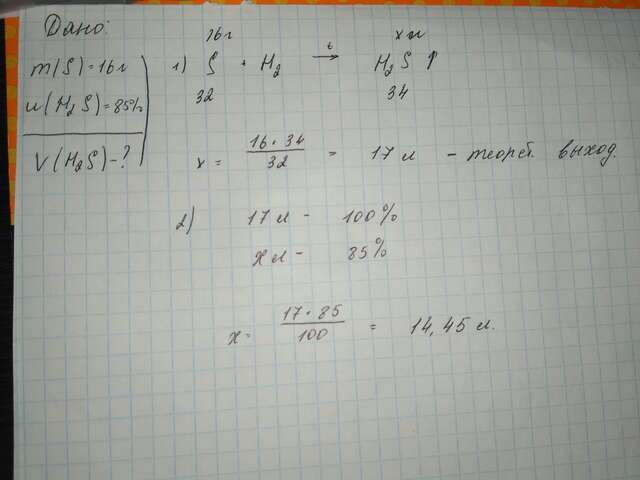 Дано:
m(S)=16г
ω(H₂S)=85%
V(H₂S)-?
16г x л
1) S + H₂ t→ H₂S ↑
32 34
x = 16·34/32 = 17 л - теорет. выход.
2) 17 л - 100%
x л - 85%
x = 17·85/100 = 14,45 л.